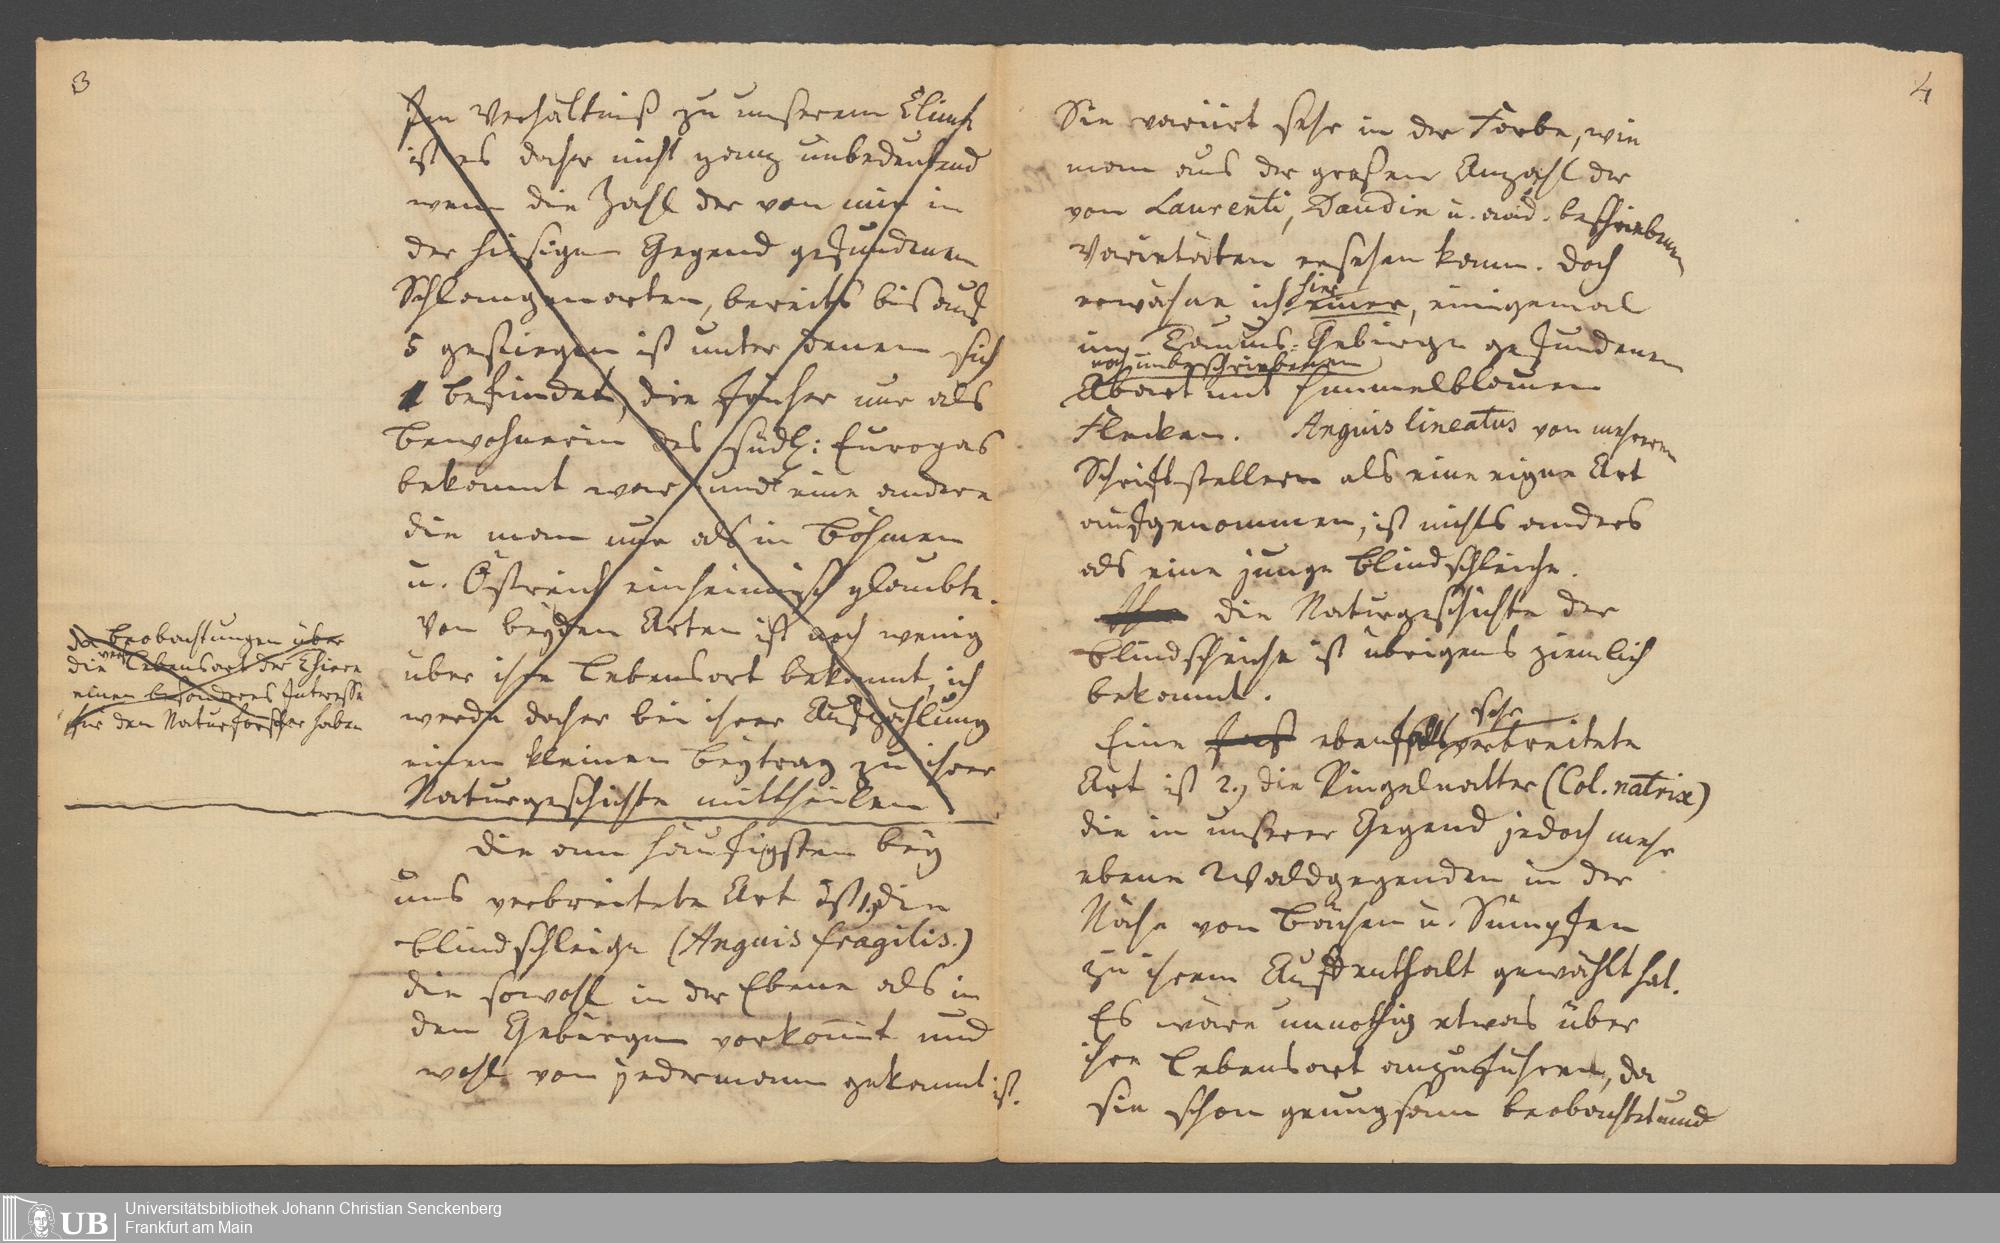 3
Im Verhältniß zu unserem Clima
ist es daher nicht ganz unbedeutend
wenn die Zahl der von mir in
der hiesigen Gegend gefundenen
Schlangenarten, bereits bis auf
5 gestiegen ist unter denen sich
1 befindet, die früher nur als
Bewohnerin des südl: Europas
bekannt war und eine andere
die man nur als in Böhmen
u. Östreich einheimisch glaubte.
Von beyden Arten ist noch wenig
über ihre Lebensart bekannt, ich
werde daher bei ihrer Aufzählung
einen kleinen Beytrag zu ihrer
Naturgeschichte mittheilen
da Beobachtungen über
die Lebensart der Thiere
einen besonderes Interesse
für den Naturforscher haben
Die am häufigsten bey
uns verbreitete Art ist 1, die
Blindschleiche (Anguis fragilis.)
die sowohl in der Ebene als in
den Gebürgen vorkommt und
wohl von jedermann gekannt ist.
4
Sie variirt sehr in der Farbe, wie
man aus der großen Anzahl der
von Laurenti, Daudin u. and. beschriebenen
Varietäten ersehen kann. Doch
erwähne ich hier einer, einigemal
im Taunus-Gebürge gefundenen
noch unbeschriebenen
Abart mit himmelblauen
Flecken. Anguis lineatus von mehreren
Schriftstellern als eine eigne Art
aufgenommen, ist nichts anders
als eine junge Blindschleiche.
Die Naturgeschichte der
Blindscheiche ist übrigens ziemlich
bekannt.
Eine fast ebenfalls sehr verbreitete
Art ist 2, die Ringelnatter (Col. natrix)
die in unserer Gegend jedoch mehr
ebene Waldgegenden in der
Nähe von Bächen u. Sümpfen
zu ihrem Aufenthalt gewählt hat.
Es wäre unnöthig etwas über
ihre Lebensart anzuführen, da
sie schon genungsam beobachtet und
UB
Universitätsbibliothek Johann Christian Senckenberg
Frankfurt am Main